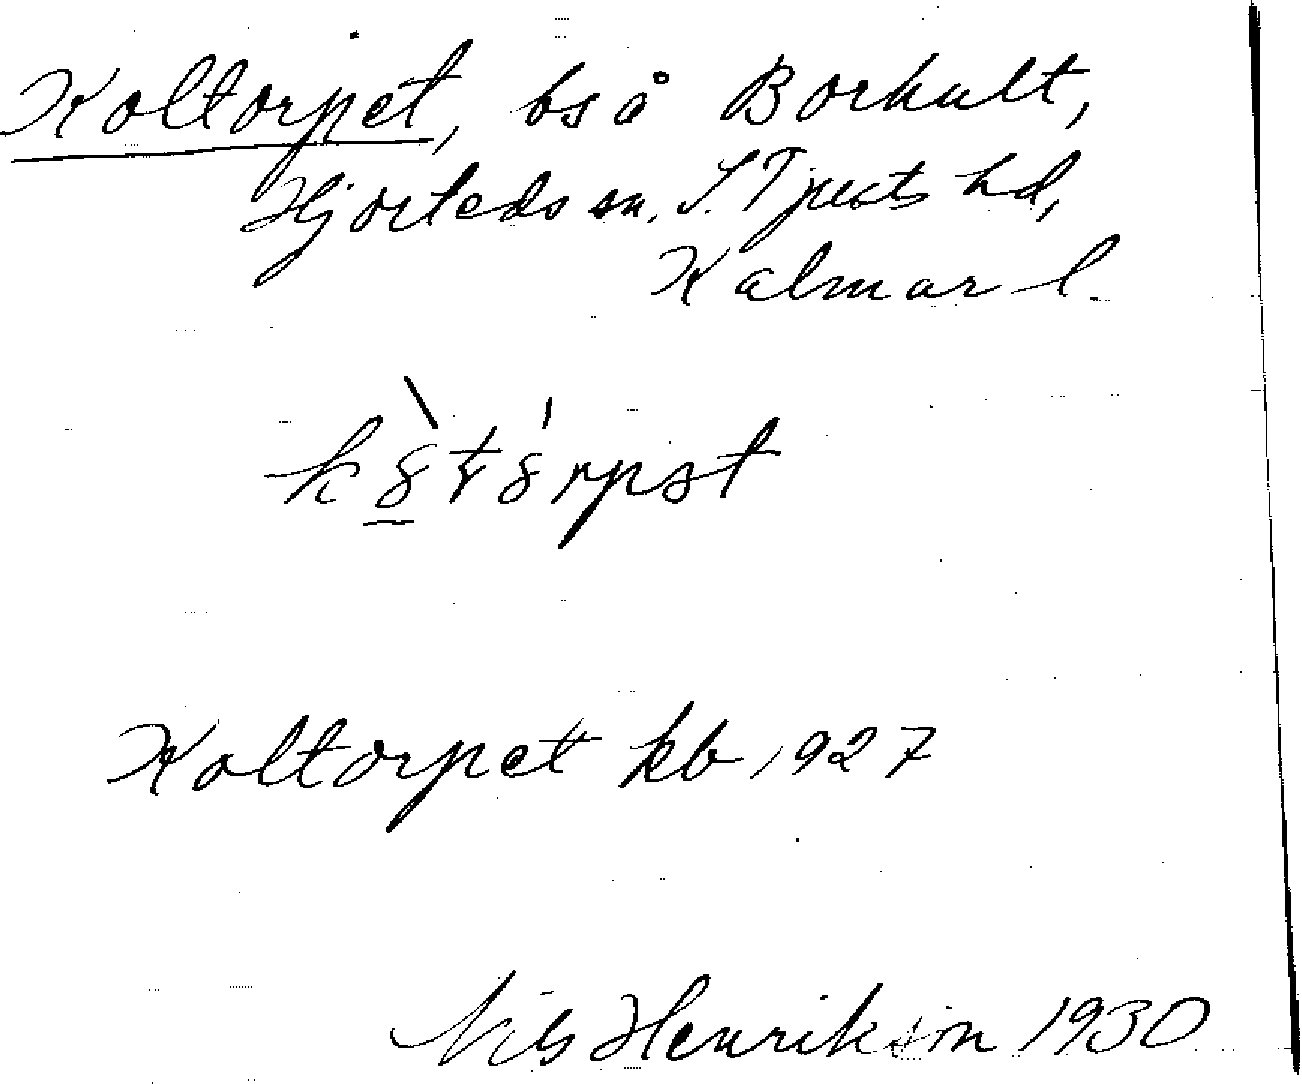 Koltorpet, bs å Borhult,
Hjorteds sn. S. Tjusts hd,
Kalmar l.
Koltorpet kb 1927
Nils Henrikson 1930